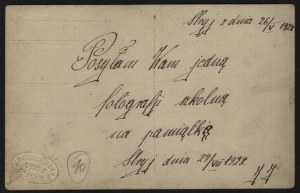 Stryj z dnia 26/V 1928
Posyłam Wam jedną
fotografji szkolną
na pamiątkę
Stryj dnia 29/VII 1928.
10